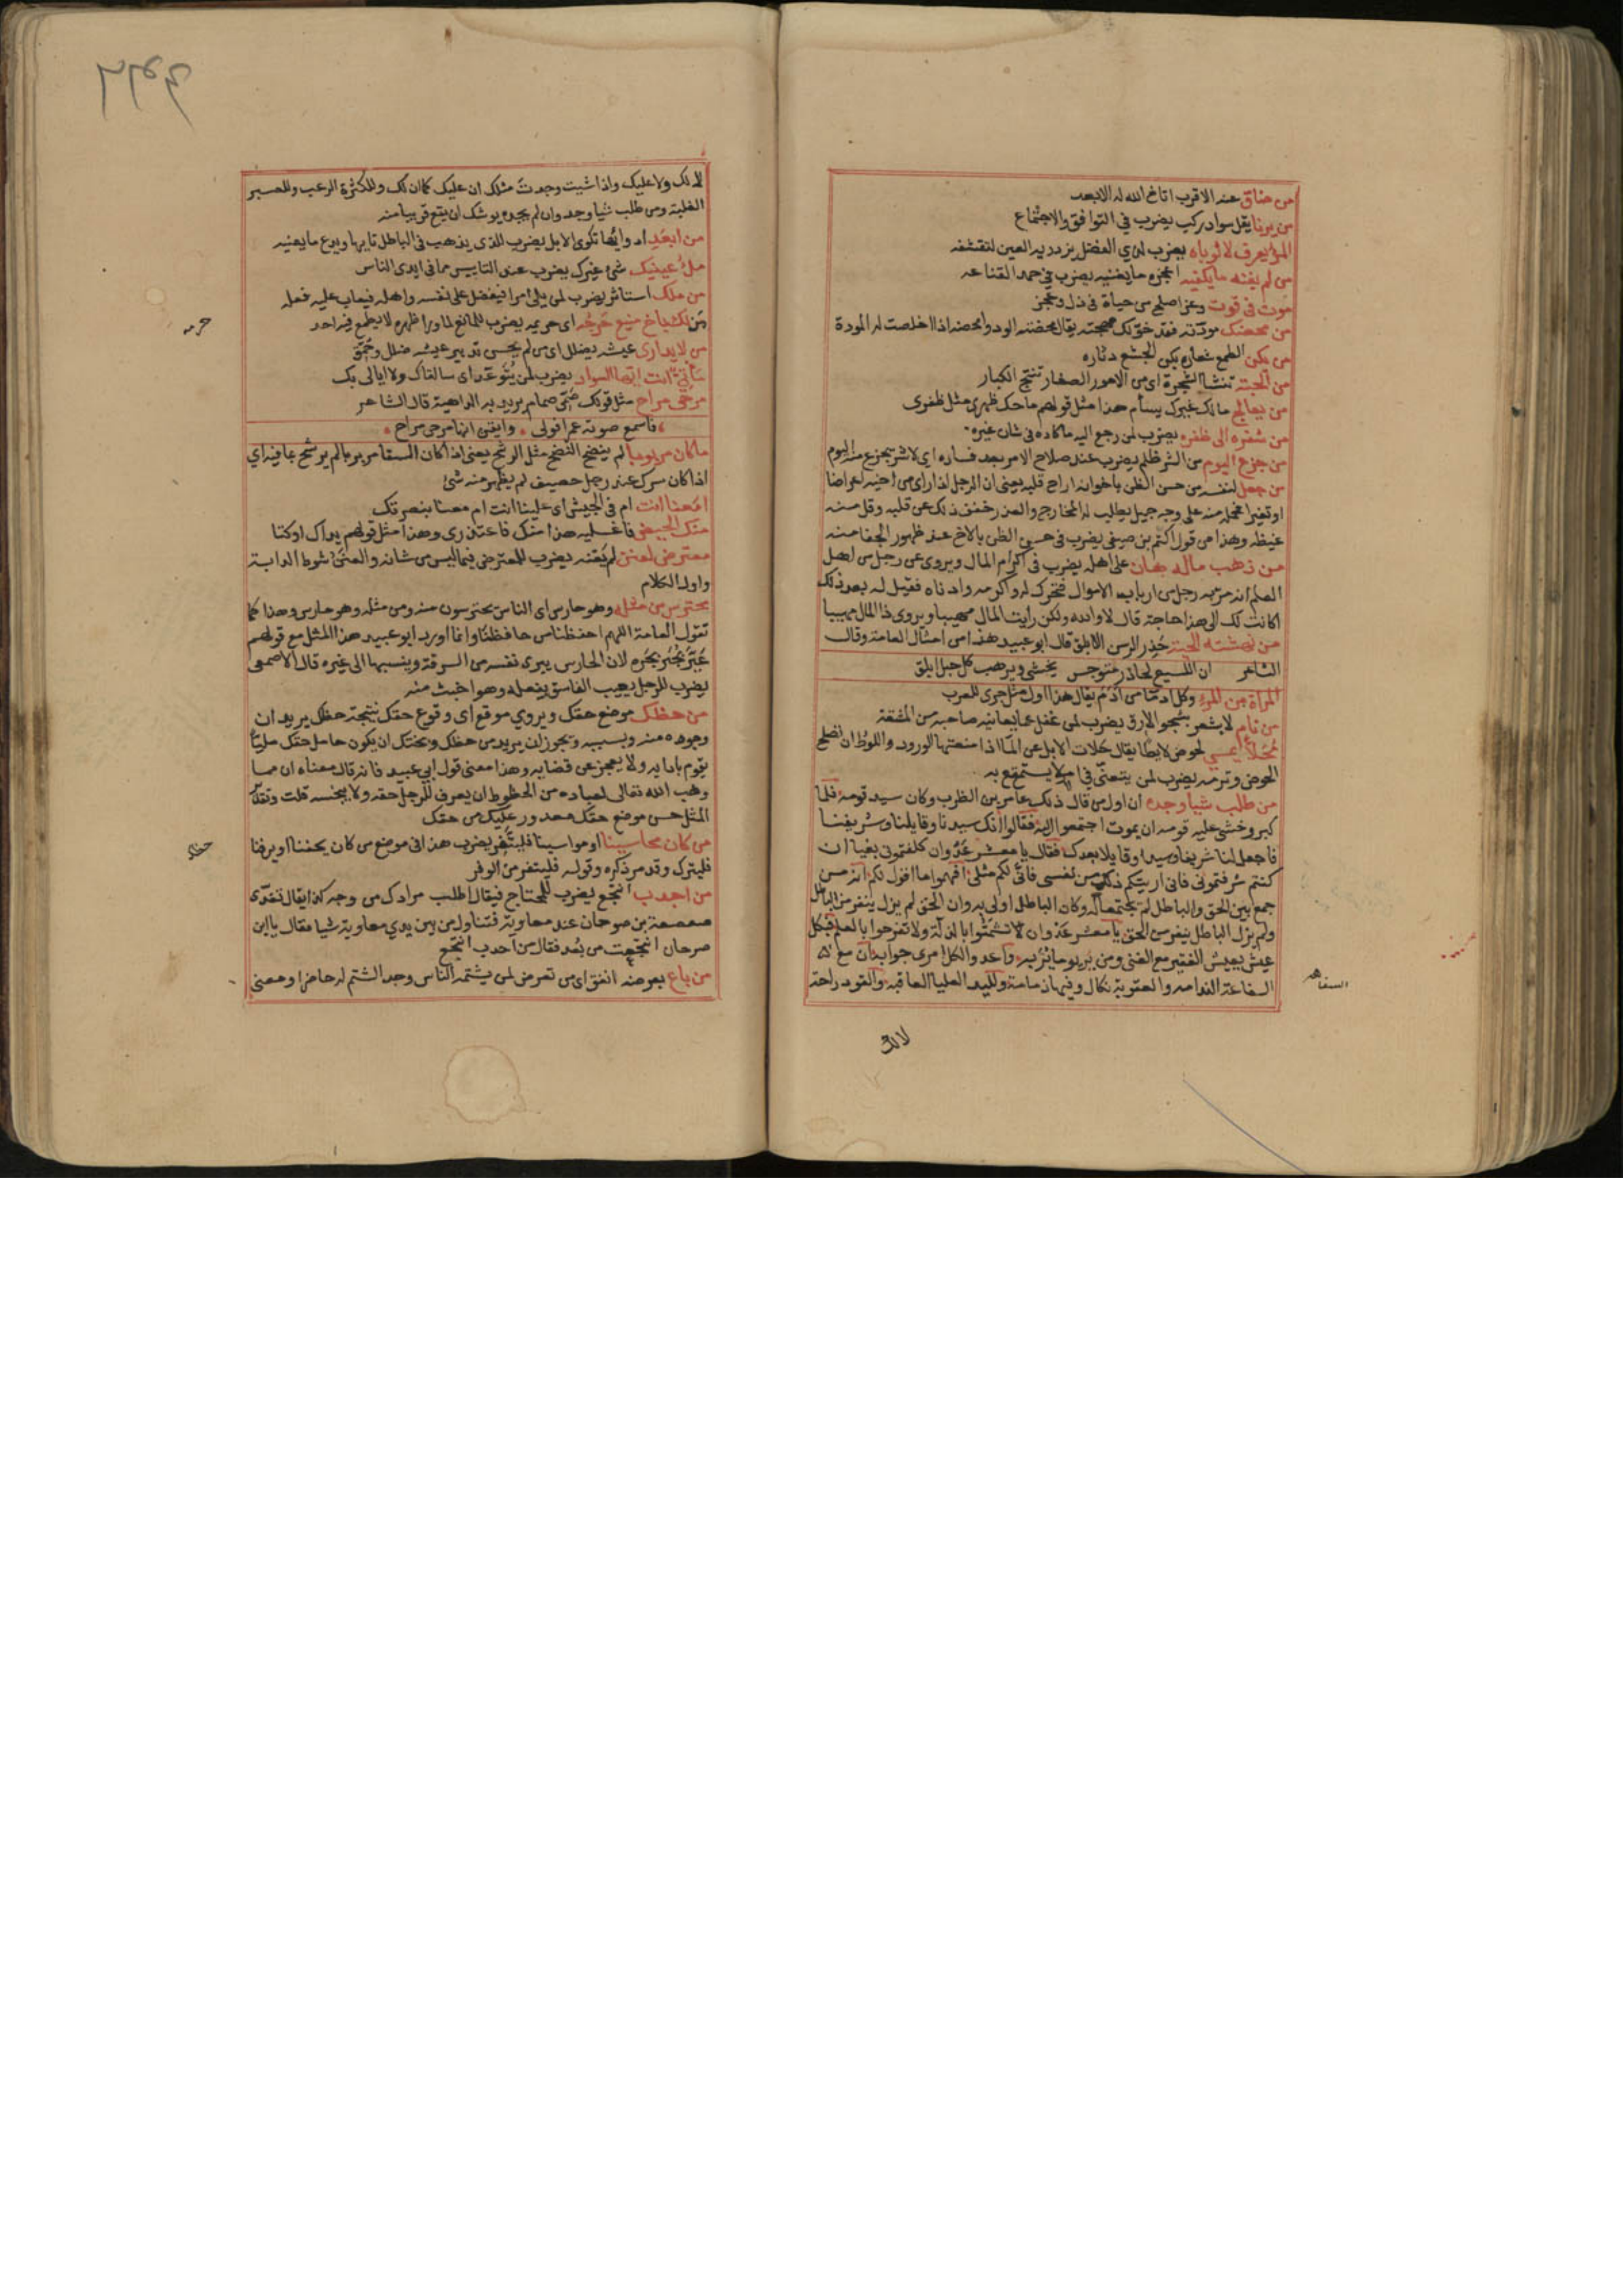 من ضاق عنه الاقرب اتاح الله له الابعد
من يرنا يقل سواد ركب يضرب في التوافق والاجتماع
المرؤ يعرف لا ثوباه يضرب لذي الفضل يزدريه العين لتقشفه
من لم يغنه ما يكفيه اعجزه ما يغنيه يضرب في حمد القناعه
موت في قوت وعز اصلح من حياة في ذل وعجز
من محضك مودته فقد خولك مهجته يقال محضته الود وامحضته اذا اخلصت له المودة
من يكن الطمع شعاره يكن الجشع دثاره
من الحبة تنشا الشجرة اي من الامور الصغار تنتج الكبار
من يعالج مالك غيرك يسأم هذا مثل قولهم ما حك ظهري مثل ظفري
من شفره الى ظفره يضرب لمن رجع اليه ما كاده في شان غيره
من جزع اليوم من الشر ظلم يضرب عند صلاح الامر بعد فساده اي لا شر يجزع منه اليوم
من جعل لنفسه من حسن الظن باخوانه اراح قلبه يعني ان الرجل اذا راى من اخيه اعراضا
او تغيرا فحمله منه على وجه جميل وطلب له المخارج والعذر خفف ذلك عن قلبه وقل منه
غيظه وهذا من قول اكثم بن صيفي يضرب في حسن الظن بالاخ عند ظهور الجفا منه
من ذهب ماله هان على اهله يضرب في اكرام المال ويروى عن رجل من اهل
العلم انه مر به رجل من ارباب الاموال فتحرك له واكرمه وادناه فقيل له بعد ذلك
اكانت لك الى هذا حاجة قال لا والله ولكن رايت المال مهيبا ويروى ذا المال مهيبا
من نهشته الحية حذر الرسن الابلق قال ابو عبيد هذا من امثال العامة وقال
الشاعر ان اللسيع لحاذر متوجس يخشى ويرهب كل حبل ابلق
المراة من المرء وكل ادماء من ادم يقال هذا اول مثل جرى للعرب
من نام لا يشعر بشجو الارق يضرب لمن غفل عما يعانيه صاحبه من المشقة
محلأ يمسي لحوض لايطا يقال حلات الابل عن الما اذا منعتها الورود واللوط ان تصلح
الحوض وترمه يضرب لمن يتعنى في امر لا يستمتع به
من طلب شيا وجده ان اول من قال ذلك عامر بن الظرب وكان سيد قومه فلما
كبر وخشي عليه قومه ان يموت اجتمعوا اليه فقالوا انك سيدنا وقايلنا وشريفنا
فاجعل لنا شريفا وسيدا وقايلا بعدك فقال يا معشر عدوان كلفتموني بغيا ان
كنتم شرفتموني فاني اريتكم ذلك من نفسي فانى لكم مثلي افهموا ما اقول لكم انه من
جمع بين الحق والباطل لم يجتمعا له وكان الباطل اولى به وان الحق لم يزل ينفر من الباطل
ولم يزل الباطل ينفر من الحق يا معشر عدوان لا تشمتوا بالذلة ولا تفرحوا بالعلو فبكل
عيش يعيش الفقير مع الغني ومن ير يوما ير به واعدوا لكل امرئ جوابه ان مع
السفاهة الندامه والعقوبة نكال وفيها ذمامة ولليد العليا العاقبه والقود راحة
السفاهه
لا لك
لا لك ولا عليك واذا شيت وجدت مثلك ان عليك كما ان لك وللكثرة الرعب وللصبر
الغلبة ومن طلب شيا وجده وان لم يجده يوشك ان يقع قريبا منه
من ابعد ادوايها تكوى الابل يضرب للذي يذهب في الباطل تايها ويدع ما يعنيه
ملء عينيك شئ غيرك يضرب عند التاييس مما في ايدي الناس
من ملك استاثر يضرب لمن يلي امرا فيفضل على نفسه واهله فيعاب عليه فعله
من لك بباخ منيع حرجه اي حريمه يضرب للمانع لما ورا ظهره لا يطمع فيه احد
من لا يداري عيشه يضلل اي من لم يحسن تدبير عيشه ضلل وحمق
متى تاتي انت ايها السواد يضرب لمن يتوعد اي سالقاك ولا ابالي بك
مرحى مراح مثل قولك صمي صمام يريد به الداهية قال الشاعر
فاسمع صوته عمرا فولى وايقن انها مرحى مراح
ما كان مربوبا لم ينضح النضح مثل الرشح يعني اذا كان السقا مربوبا لم يرشح بما فيه اي
اذا كان سرك عند رجل حصيف لم يظهر منه شئ
امعنا انت ام في الجيش اي علينا انت ام معنا بنصرتك
منك الحيض فاغسليه هذا منك فاعتذري وهذا مثل قولهم يداك اوكتا
معترض لعنن لم يعنه يضرب للمعترض فيما ليس من شانه والعنن شوط الدابة
واول الكلام
محترس من مثله وهو حارس اي الناس يحترسون منه ومن مثله وهو حارس وهذا كما
تقول العامة اللهم احفظنا من حافظنا وانما اورد ابو عبيد هذا المثل مع قولهم
عير بجير بجره لان الحارس يبري نفسه من السرقة وينسبها الى غيره قال الاصمعي
يضرب للرجل يعيب الفاسق بفعله وهو اخبث منه
من حظك موضع حقك ويروي موقع اي وقوع حقك نتيجة حظك يريد ان
وجوده منه وبسببه ويجوز ان يريد من حظك وبختك ان يكون حامل حقك مليا
يقوم بادايه ولا يعجز عن قضايه وهذا معنى قول ابي عبيد فانه قال معناه ان مما
وهب الله تعالى لعباده من الحظوظ ان يعرف للرجل حقه ولا يبخسه قلت وتقدير
المثل حسن موضع حقك معدود عليك من حقك
من كان محاسينا او مواسينا فليتفر يضرب هذا في موضع من كان يحفنا او يرفنا
فليترك وقد مر ذكره وقوله فليتفر من الوفر
من اجدب انتجع يضرب للمحتاج فيقال اطلب مرادك من وجه كذا يقال تغدى
صعصعة بن صوحان عند معاوية فتناول من بين يدي معاوية شيا فقال يا ابن
صوحان انتجعت من بعد فقال من اجدب انتجع
من باع بعرضه انفق اي من تعرض لمن يشتمه الناس وجد الشتم له حاضرا ومعنى